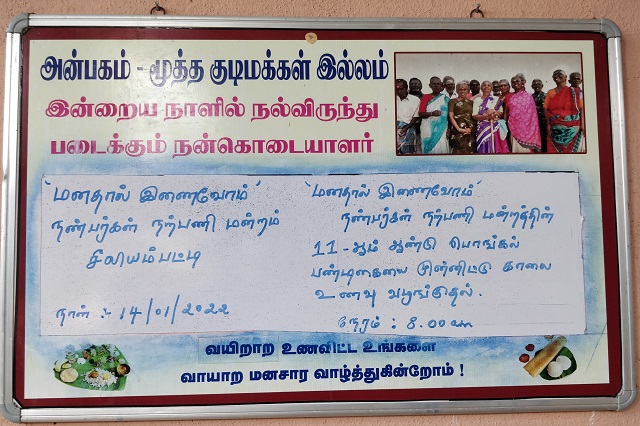 அன்பகம் - மூத்த குடிமக்கள் இல்லம்
இன்றைய நாளில் நல்விருந்து
படைக்கும் நன்கொடையாளர்
"மனதால் இணைவோம்"
நண்பர்கள் நற்பணி மன்றம்
சிலியம்பட்டி
நாள் : 14/01/2022
"மனதால் இணைவோம்"
நண்பர்கள் நற்பணி மன்றத்தின்
11-ஆம் ஆண்டு பொங்கல்
பண்டிகையை முன்னிட்டு காலை
உணவு வழங்குதல்.
நேரம் : 8.00
வயிறார உணவிட்ட உங்களை
வாயார மனசார வாழ்த்துகின்றோம் !